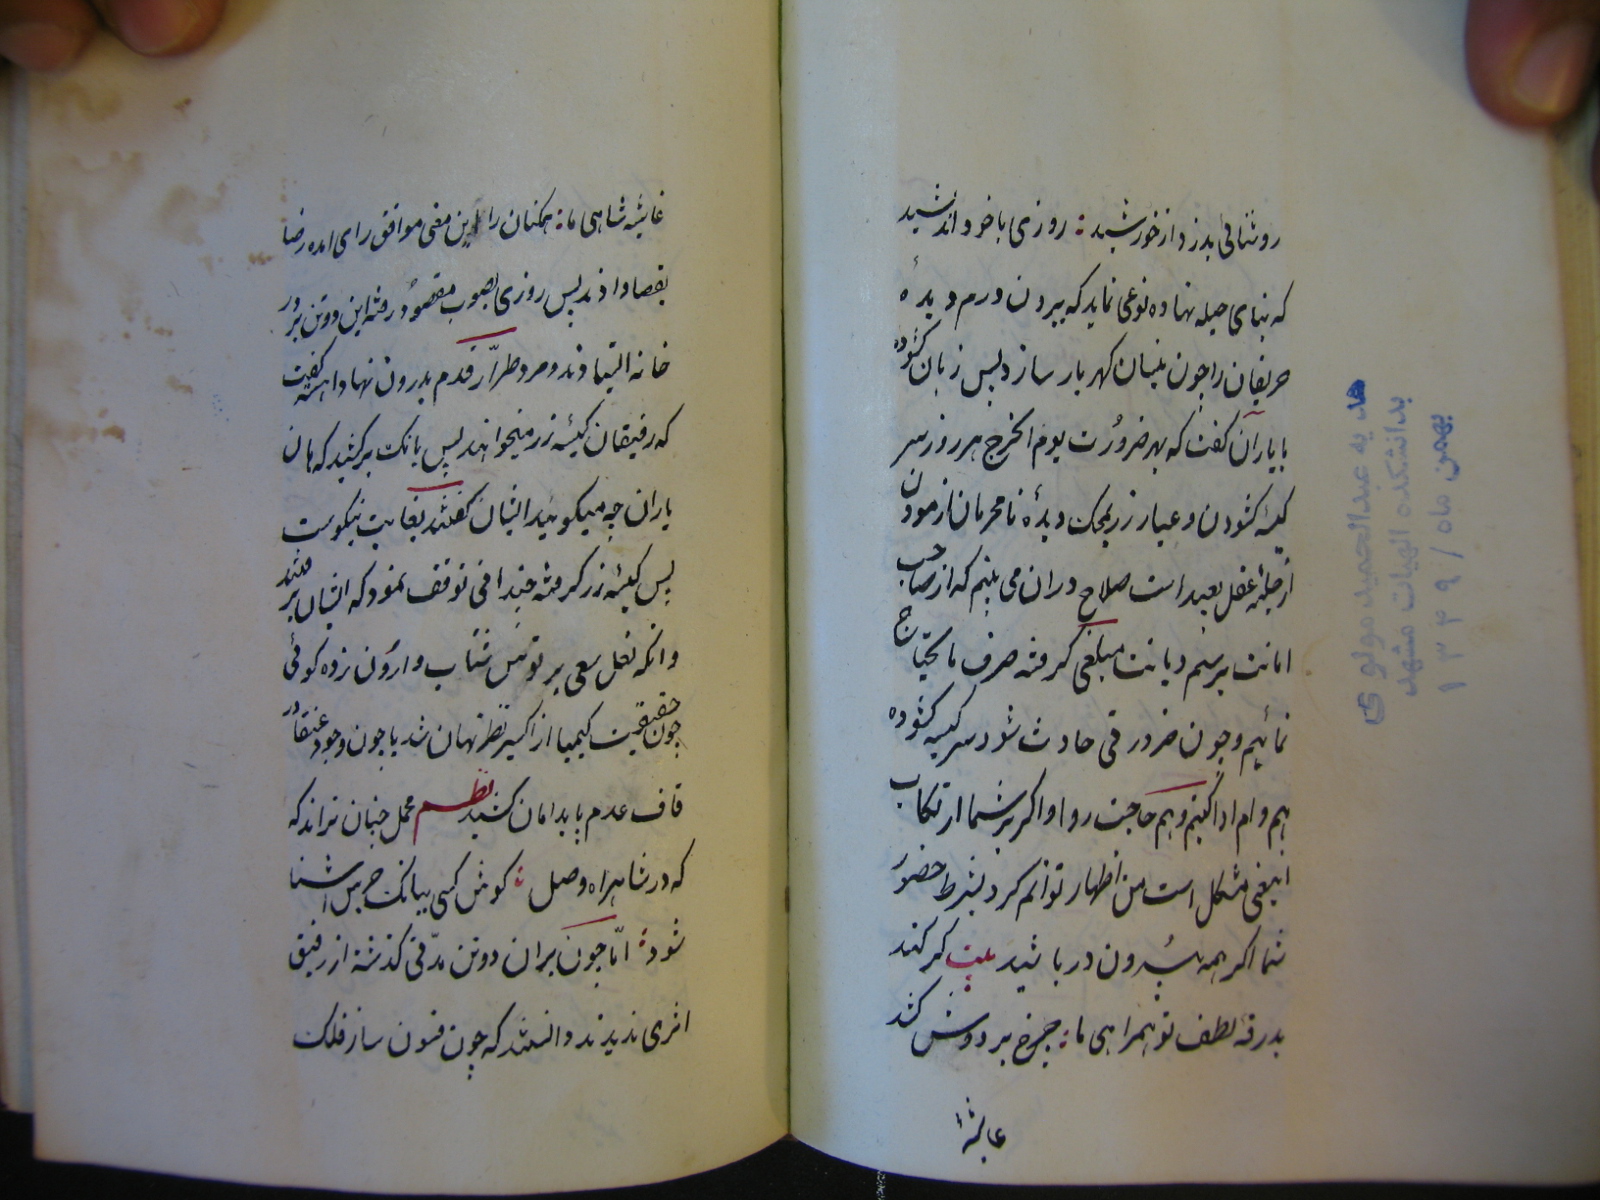 روشنائی بدزد از خورشید : روزی با خود اندیشید
که بنای حیله نهاده نوعی نماید که بیرون ورم دیدهٔ
حریفان را چون بنیان کهربار سازد پس زبان کشوده
با یاران کفت که بهر ضرورت یوم الخرج هر روز سر
کیسه کشودن و عیار زر بمحک دیدهٔ نامحرمان ازمودن
از حیلهٔ عقل بعید است صلاح دران می بینم که از صاحب
امانت برسم دیانت مبلغی کرفته صرف مایحتاج
نمائیم و چون ضرورتی حادث شود سر کیسه کشوده
هم وام ادا کنیم و هم حاجت روا و اکر بر شما ارتکاب
اینمعنی مشکل است من اظهار توانم کرد بشرط حضور
شما اکر همه بیرون در باشید بیت کر کند
بدرقهٔ لطف تو همراهی ما : چرخ بر دوش کشد
غاشیهٔ
غاشیه شاهی ما : همکنان را این معنی موافق رای امده رضا
بقضا دادند پس روزی بصوب مقصود رفته این دو تن بر در
خانه الستادند و مرد طرار قدم بدرون نهاد اهسته کفت
که رفیقان کیسه زر میخواهند پس بانک برکشید که هان
یاران چه میکوئید ایشان کفتند بغایت نیکوست
پس کیسه زر کرفته چندانی توقف نمود که ایشان برفتند
وانکه نعل سعی بر توسن شتاب وارون زده کوئی
چون حقیقت کیمیا از اکسیر نظر نهان شد یا چون وجود عنقا در
قاف عدم پا بدامان کشید نظم محمل چنان نراند که
که در شاهراه وصل : کوش کسی ببانک جرس اشنا
شود : امّا چون بران دو تن مدّتی کذشته از رفیق
اثری ندیدند دانستند که چون فسون ساز فلک
هدیه عبدالحمید مولوی
بدانشکده الهیات مشهد
بهمن ماه / ۱۳۴۹